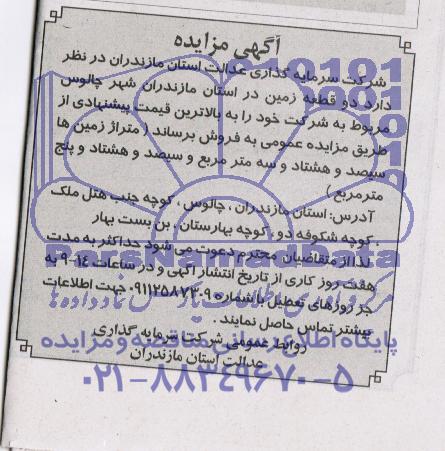 آگهی مزایده
شرکت سرمایه گذاری عدالت استان مازندران در نظر
دارد دو قطعه زمین در استان مازندران شهر چالوس
مربوط به شرکت خود را به بالاترین قیمت پیشنهادی از
طریق مزایده عمومی به فروش برساند (متراژ زمین ها
سیصد و هشتاد و سه متر مربع و سیصد و هشتاد و پنج
مترمربع)
آدرس: استان مازندران، چالوس، کوچه جنب هتل ملک
، کوچه شکوفه دو، کوچه بهارستان، بن بست بهار
لذا از متقاضیان محترم دعوت می شود حداکثر به مدت
هفت روز کاری از تاریخ انتشار آگهی و در ساعات ۱۴-۹ به
جز روزهای تعطیل با شماره ۰۹۱۱۲۵۸۷۳۰۹ جهت اطلاعات
بیشتر تماس حاصل نمایند.
روابط عمومی شرکت سرمایه گذاری
عدالت استان مازندران
ParsNamadData
پایگاه اطلاع رسانی مناقصه و مزایده
۰۲۱-۸۸۳۴۹۶۷۰-۵